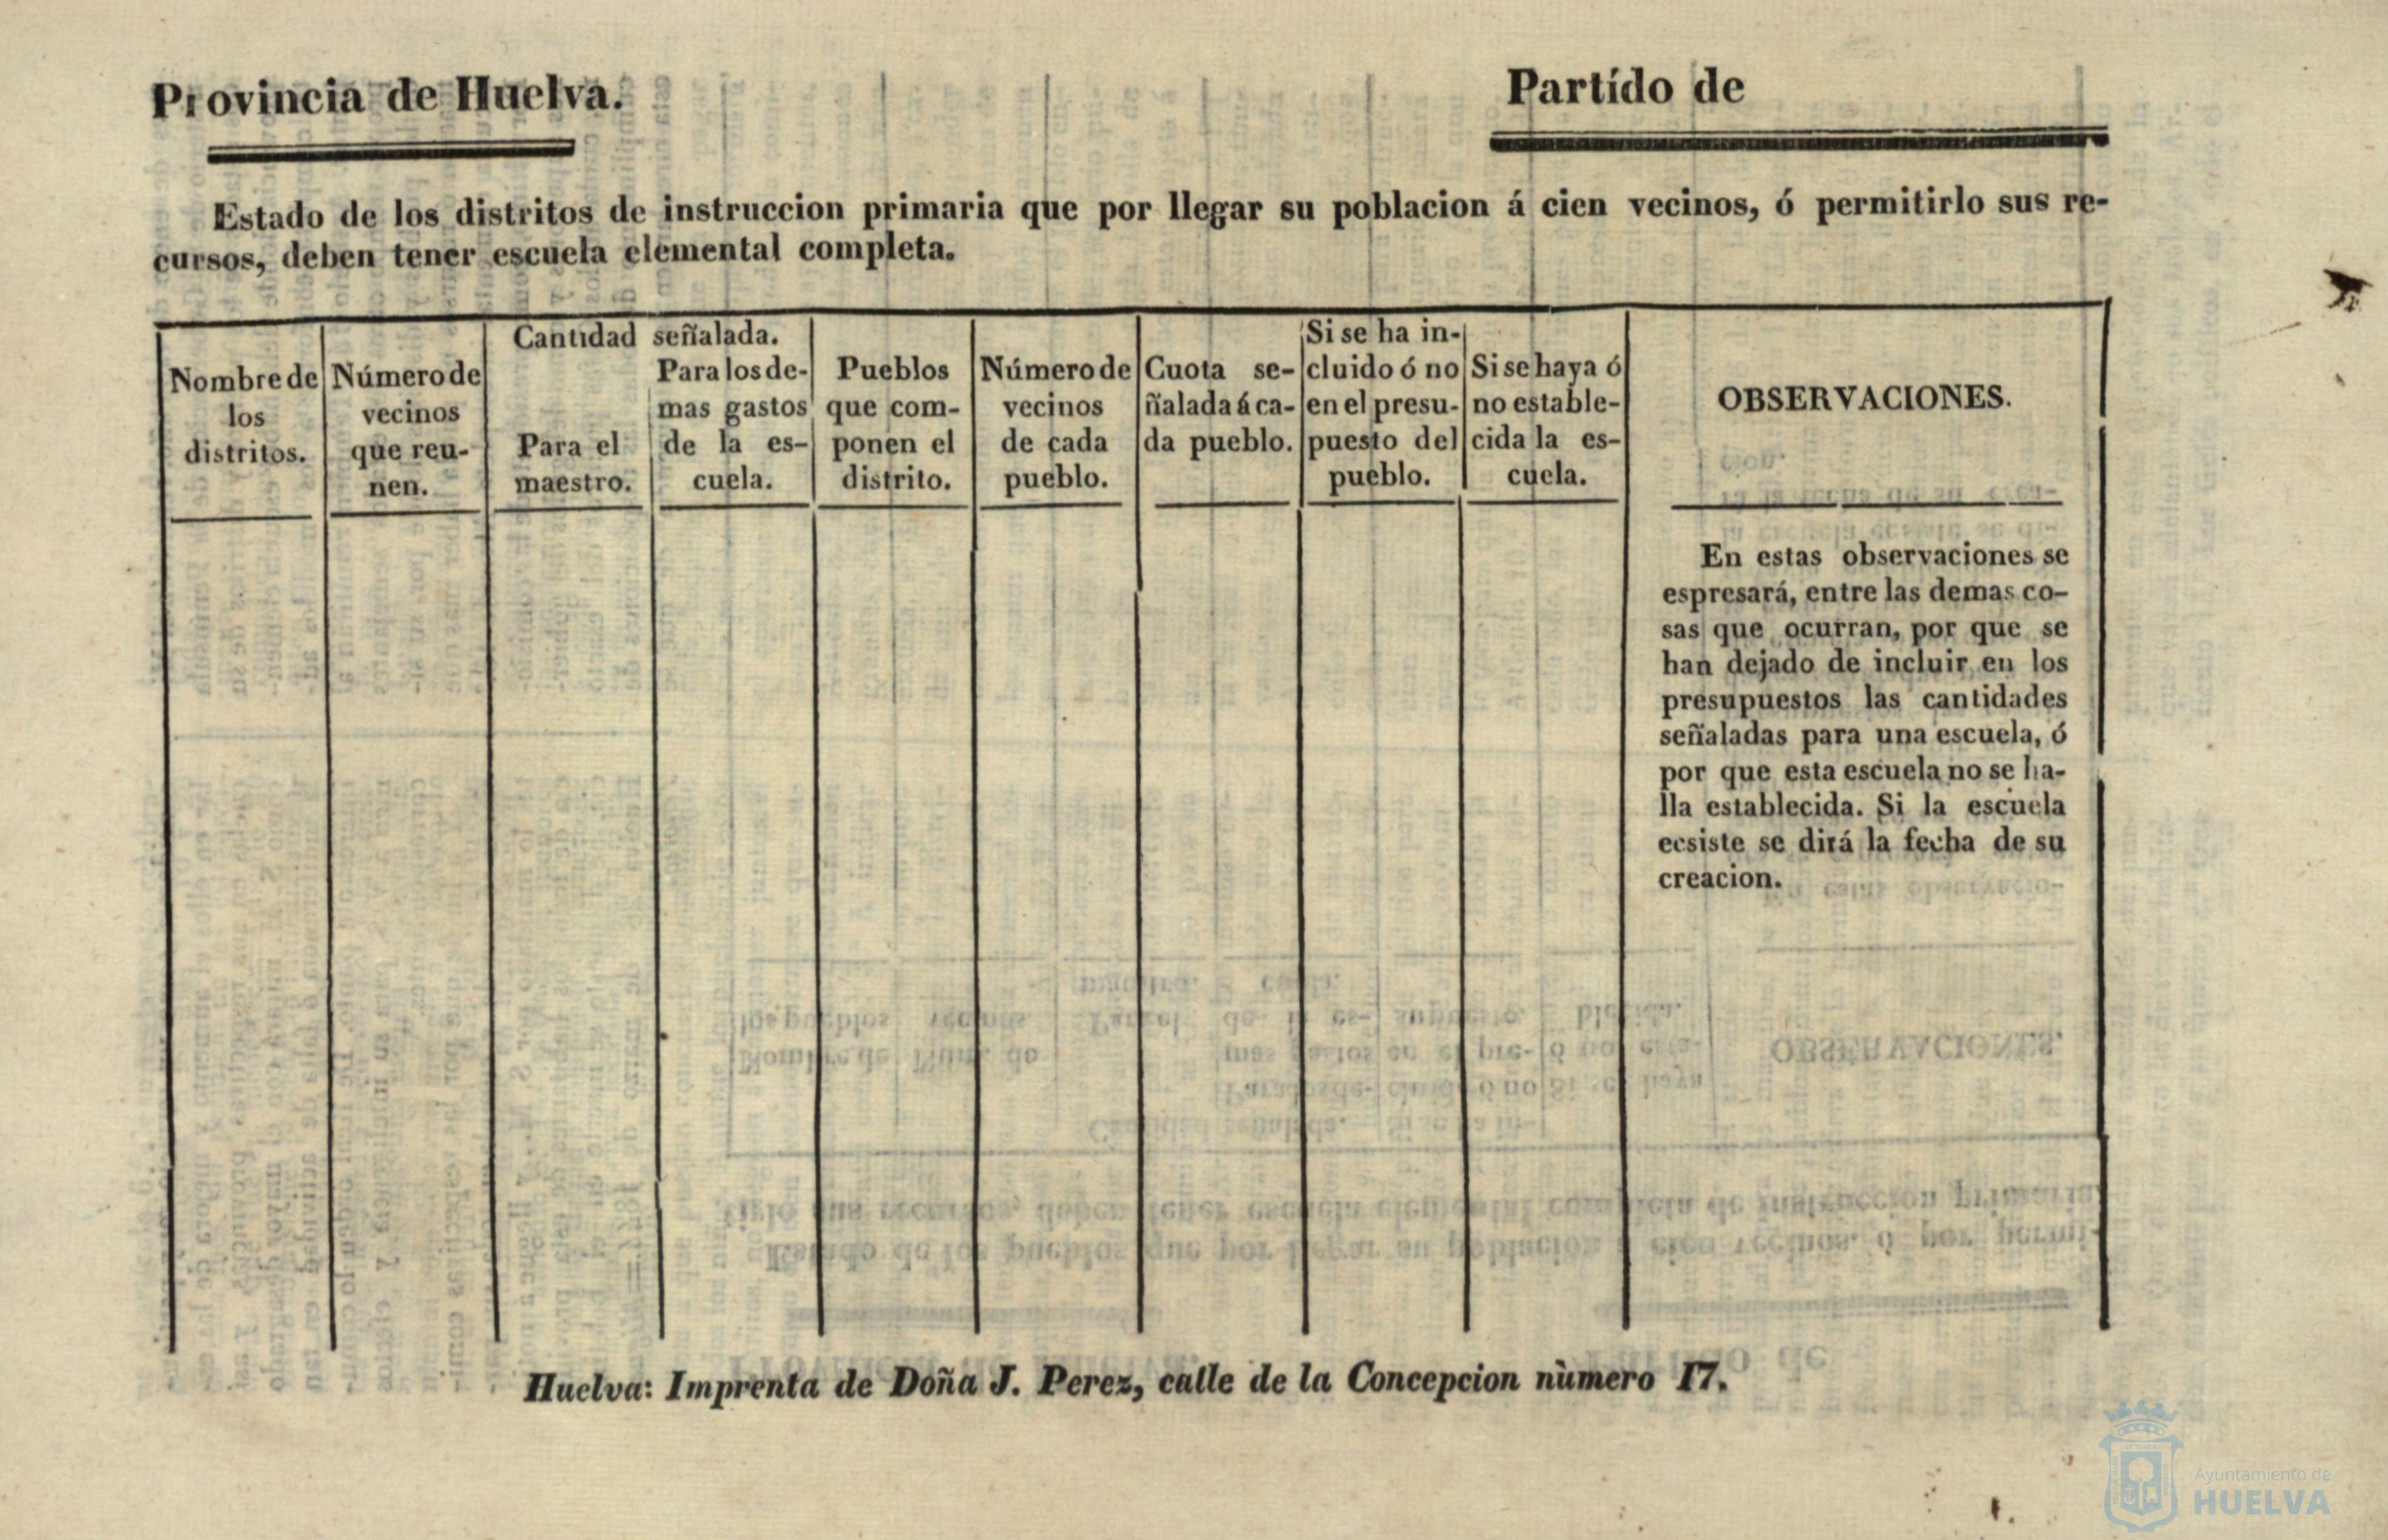 Provincia de Huelva.
Partído de
Estado de los distritos de instruccion primaria que por llegar su poblacion á cien vecinos, ó permitirlo sus re-
cursos, deben tener escuela elemental completa.
Nombre de
los
distritos.
Número de
vecinos
que reu-
nen.
Cantidad señalada.
Para el
maestro.
Para los de-
mas gastos
de la es-
cuela.
Pueblos
que com-
ponen el
distrito.
Número de
vecinos
de cada
pueblo.
Cuota se-
ñalada á ca-
da pueblo.
Si se ha in-
cluido ó no
en el presu-
puesto del
pueblo.
Si se haya ó
no estable-
cida la es-
cuela.
OBSERVACIONES.
En estas observaciones se
espresará, entre las demas co-
sas que ocurran, por que se
han dejado de incluir en los
presupuestos las cantidades
señaladas para una escuela, ó
por que esta escuela no se ha-
lla establecida. Si la escuela
ecsiste se dirá la fecha de su
creacion.
Huelva: Imprenta de Doña J. Perez, calle de la Concepcion nùmero 17.
Ayuntamiento de
HUELVA